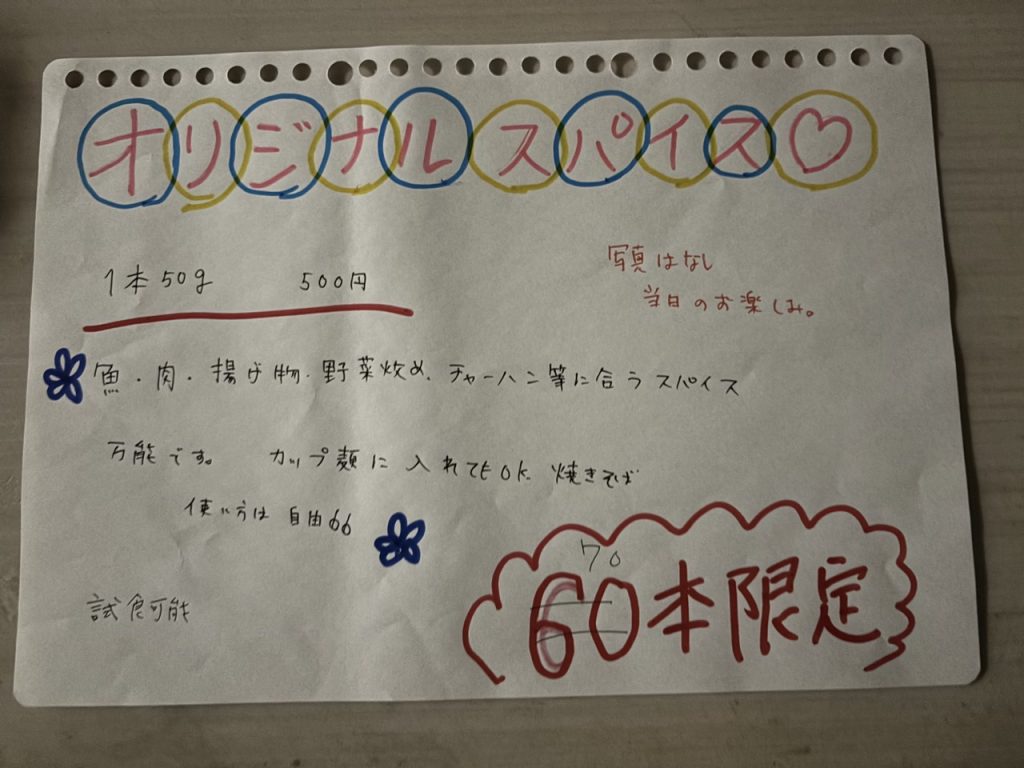 オリジナルスパイス♡
1本50g 500円
写真はなし
当日のお楽しみ。
魚・肉・揚げ物・野菜炒め、チャーハン等に合うスパイス
万能です。 カップ麺に入れてもOK. 焼きそば
使い方は自由66
試食可能
70
60本限定